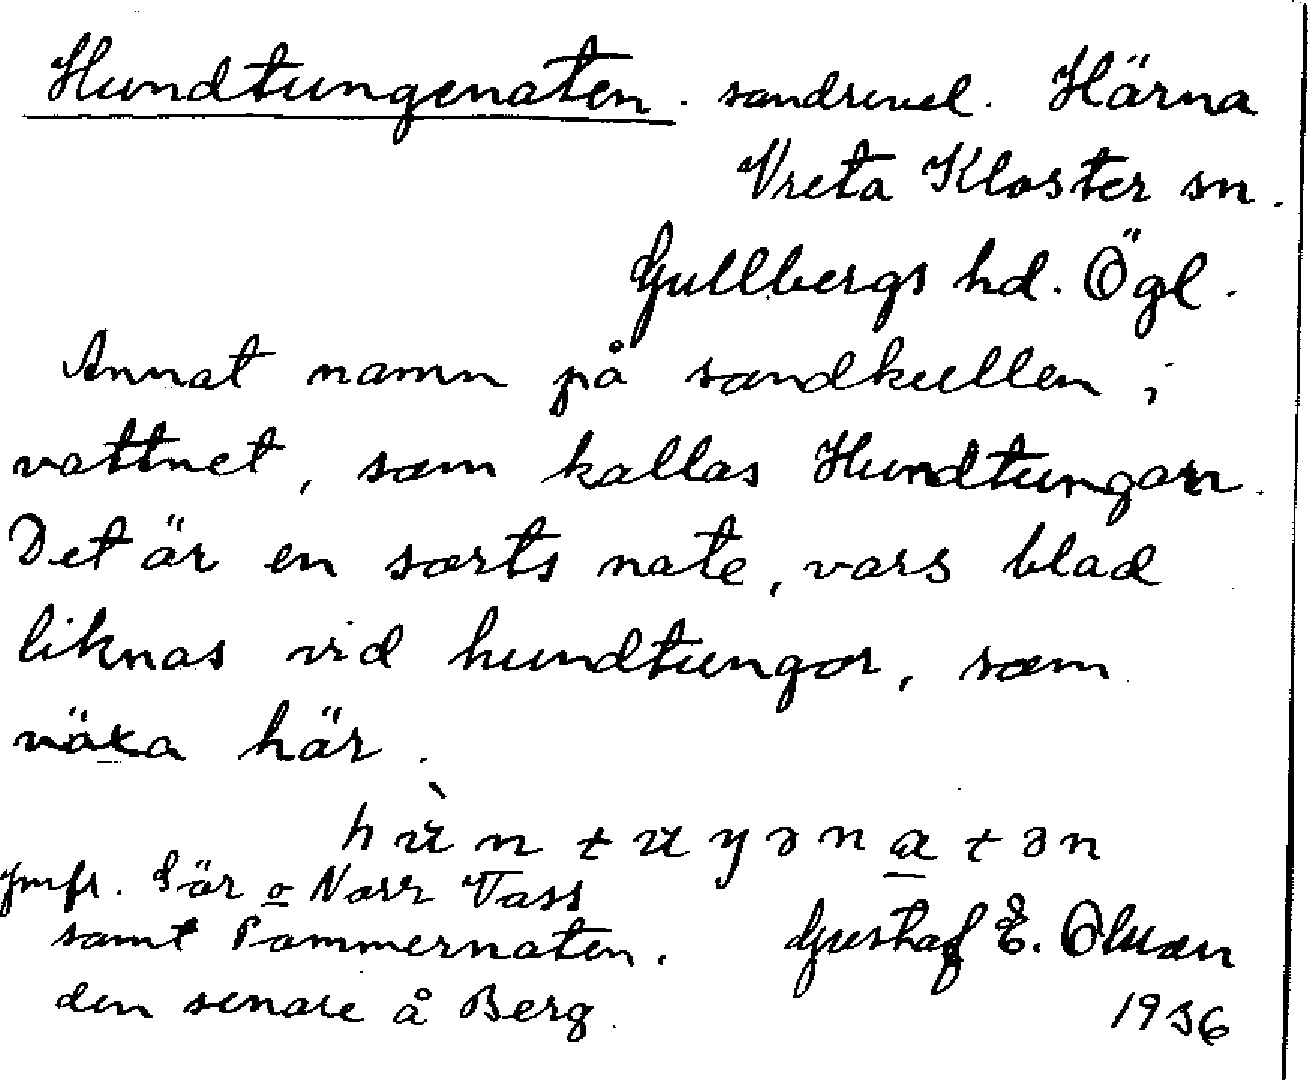 Hundtungenaten. sandrevel. Härna
Vreta Kloster sn.
Gullbergs hd. Ögl.
Annat namn på sandkullen i
vattnet, som kallas Hundtungan.
Det är en sorts nate, vars blad
liknas vid hundtungor, som
växa här.
Jmfr. Sör o Norr Vass
samt Pommernaten.
den senare å Berg.
Gustaf E. Olsson
1936